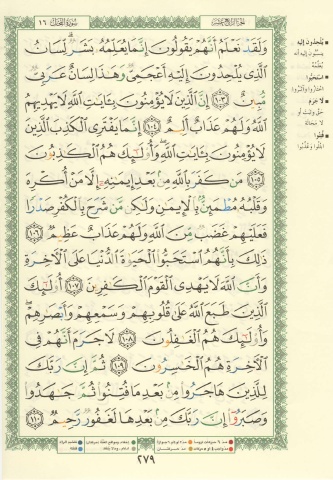 الجزء الرابع عشر
سورة النحل ١٦
وَلَقَدْ نَعْلَمُ أَنَّهُمْ يَقُولُونَ إِنَّمَا يُعَلِّمُهُۥ بَشَرٌ لِّسَانُ
ٱلَّذِى يُلْحِدُونَ إِلَيْهِ أَعْجَمِىٌّ وَهَٰذَا لِسَانٌ عَرَبِىٌّ
مُّبِينٌ ١٠٣ إِنَّ ٱلَّذِينَ لَا يُؤْمِنُونَ بِـَٔايَٰتِ ٱللَّهِ لَا يَهْدِيهِمُ
ٱللَّهُ وَلَهُمْ عَذَابٌ أَلِيمٌ ١٠٤ إِنَّمَا يَفْتَرِى ٱلْكَذِبَ ٱلَّذِينَ
لَا يُؤْمِنُونَ بِـَٔايَٰتِ ٱللَّهِ وَأُو۟لَٰٓئِكَ هُمُ ٱلْكَٰذِبُونَ
١٠٥ مَن كَفَرَ بِٱللَّهِ مِنۢ بَعْدِ إِيمَٰنِهِۦٓ إِلَّا مَنْ أُكْرِهَ
وَقَلْبُهُۥ مُطْمَئِنٌّۢ بِٱلْإِيمَٰنِ وَلَٰكِن مَّن شَرَحَ بِٱلْكُفْرِ صَدْرًا
فَعَلَيْهِمْ غَضَبٌ مِّنَ ٱللَّهِ وَلَهُمْ عَذَابٌ عَظِيمٌ ١٠٦
ذَٰلِكَ بِأَنَّهُمُ ٱسْتَحَبُّوا۟ ٱلْحَيَوٰةَ ٱلدُّنْيَا عَلَى ٱلْـَٔاخِرَةِ
وَأَنَّ ٱللَّهَ لَا يَهْدِى ٱلْقَوْمَ ٱلْكَٰفِرِينَ ١٠٧ أُو۟لَٰٓئِكَ
ٱلَّذِينَ طَبَعَ ٱللَّهُ عَلَىٰ قُلُوبِهِمْ وَسَمْعِهِمْ وَأَبْصَٰرِهِمْ
وَأُو۟لَٰٓئِكَ هُمُ ٱلْغَٰفِلُونَ ١٠٨ لَا جَرَمَ أَنَّهُمْ فِى
ٱلْـَٔاخِرَةِ هُمُ ٱلْخَٰسِرُونَ ١٠٩ ثُمَّ إِنَّ رَبَّكَ
لِلَّذِينَ هَاجَرُوا۟ مِنۢ بَعْدِ مَا فُتِنُوا۟ ثُمَّ جَٰهَدُوا۟
وَصَبَرُوٓا۟ إِنَّ رَبَّكَ مِنۢ بَعْدِهَا لَغَفُورٌ رَّحِيمٌ ١١٠
يُلحدون إليه
استحبوا
لا جرم
فتنوا
٢٧٩